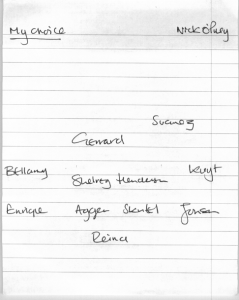 My choice Nick
Suarez
Gerrard
Bellamy Shelvey Henderson Kuyt
Enrique Agger Skrtel
Reina